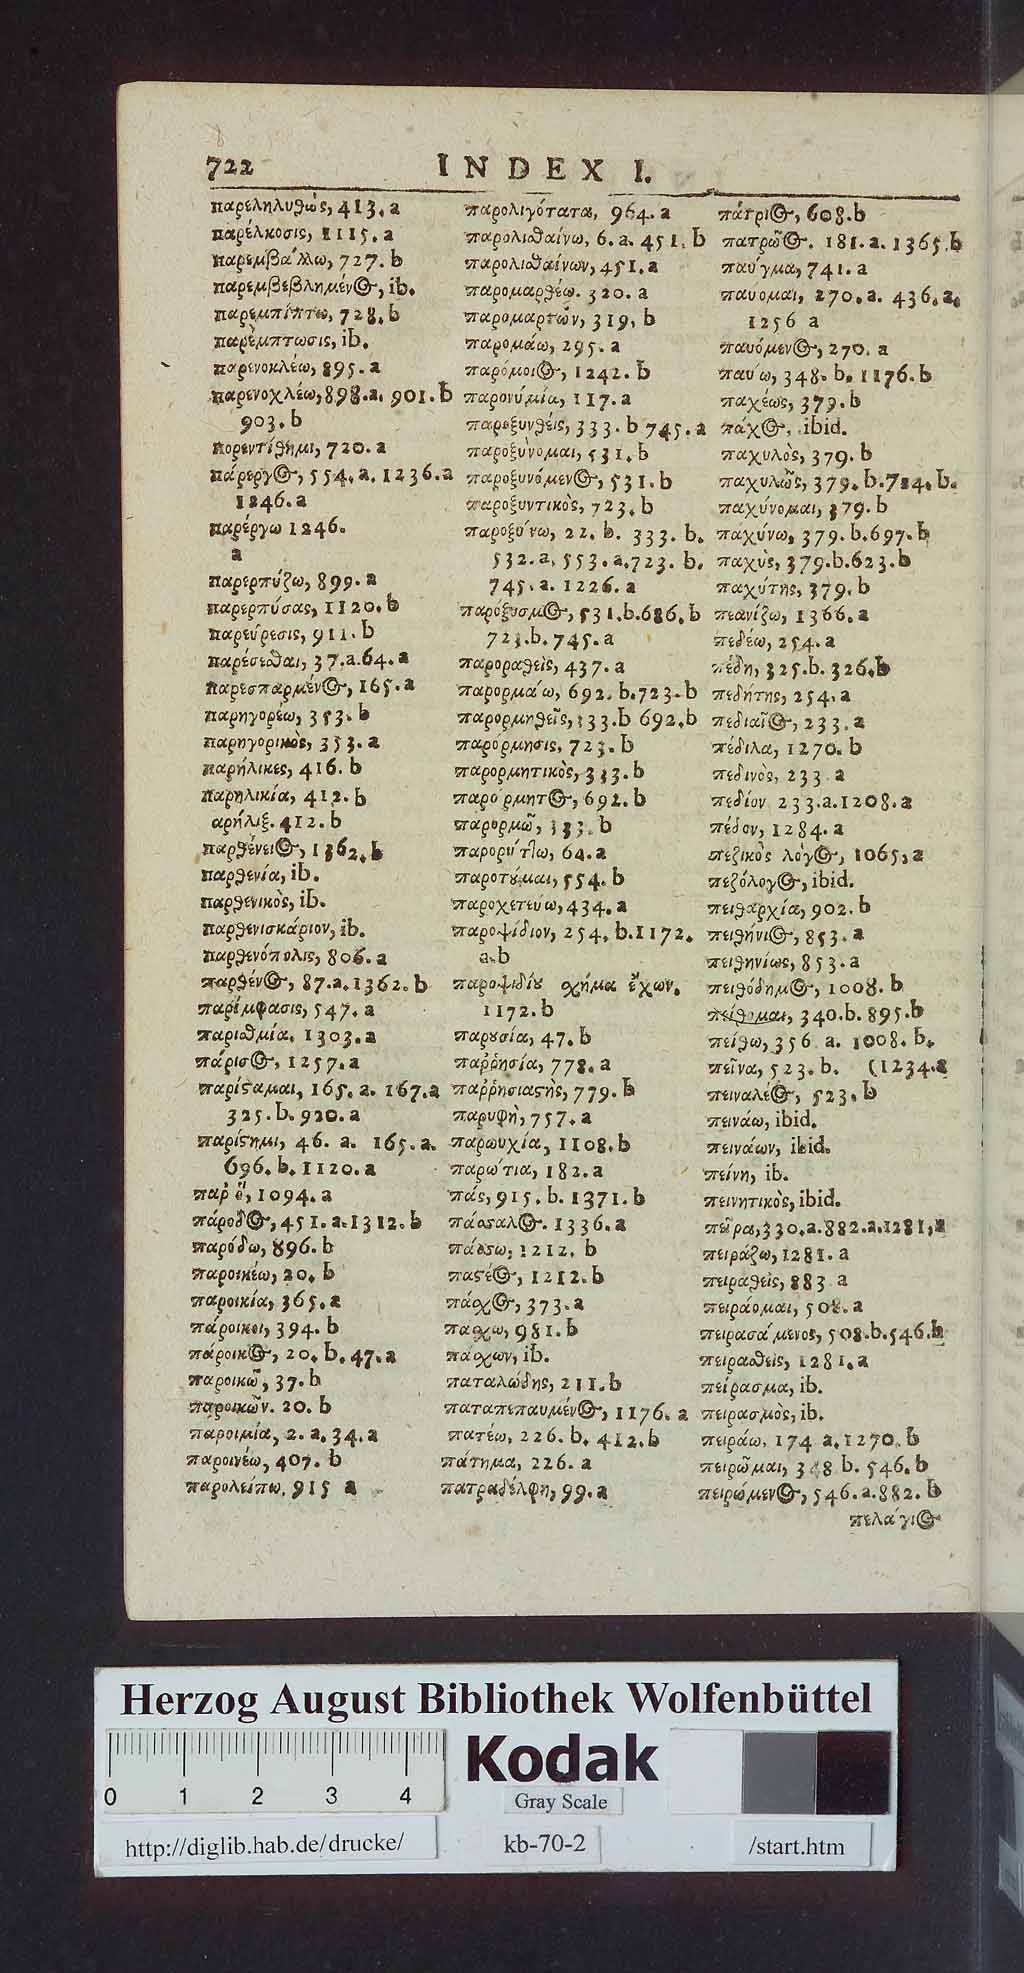 722
INDEX I.
παρεληλυθὼς, 413. a
παρέλκοσις, 1115. a
παρεμβάλλω, 727. b
παρεμβεβλημένος, ib.
παρεμπίπτω, 728. b
παρέμπτωσις, ib.
παρενοκλέω, 895. a
παρενοχλέω, 898. a. 901. b
903. b
πορεντίθημι, 720. a
πάρεργος, 554. a. 1236. a
1246. a
παρέργω 1246.
a
παρερπύζω, 899. a
παρερπύσας, 1120. b
παρεύρεσις, 911. b
παρέσεσθαι, 37. a. 64. a
παρεσπαρμένος, 165. a
παρηγορέω, 353. b
παρηγορικὸς, 353. a
παρήλικες, 416. b
παρηλικία, 412. b
αρήλιξ. 412. b
παρθένειος, 1362. b
παρθενία, ib.
παρθενικὸς, ib.
παρθενισκάριον, ib.
παρθενόπολις, 806. a
παρθένος, 87. a. 1362. b
παρέμφασις, 547. a
παρισθμία, 1303. a
πάρισος, 1257. a
παρίσταμαι, 165. a. 167. a
325. b. 920. a
παρίστημι, 46. a. 165. a.
696. b. 1120. a
παρ' ὃ, 1094. a
πάροδος, 451. a. 1312. b
παρόδω, 896. b
παροικέω, 20. b
παροικία, 365. a
πάροικοι, 394. b
πάροικος, 20. b. 47. a
παροικῶ, 37. b
παροικῶν. 20. b
παροιμία, 2. a. 34. a
παροινέω, 407. b
παρολείπω, 915 a
παρολιγότατα, 964. a
παρολισθαίνω, 6. a. 451. b
παρολισθαίνων, 451. a
παρομαρθέω. 320. a
παρομαρτῶν, 319. b
παρομάω, 295. a
παρόμοιος, 1242. b
παρονύμία, 117. a
παροξυνθείς, 333. b 745. a
παροξύνομαι, 531. b
παροξυνόμενος, 531. b
παροξυντικὸς, 723. b
παροξύνω, 22. b. 333. b.
532. a. 553. a. 723. b.
745. a. 1226. a
παρόξυσμος, 531. b. 686. b
723. b. 745. a
παροραθεὶς, 437. a
παρορμάω, 692. b. 723. b
παρορμηθεῖς, 333. b 692. b
παρόρμησις, 723. b
παρορμητικὸς, 333. b
παρόρμητος, 692. b
παρορμῶ, 333. b
παρορύττω, 64. a
παροτοῦμαι, 554. b
παροχετεύω, 434. a
παροψίδιον, 254. b. 1172.
a. b
παροψιδίου σχήμα ἔχων.
1172. b
παρουσία, 47. b
παῤῥησία, 778. a
παῤῥησιαστὴς, 779. b
παρυφὴ, 757. a
παρωυχία, 1108. b
παρώτια, 182. a
πάς, 915. b. 1371. b
πάσσαλος. 1336. a
πάσσω, 1212. b
παστέος, 1212. b
πάσχος, 373. a
πασχω, 981. b
πάσχων, ib.
παταλώδης, 211. b
παταπεπαυμένος, 1176. a
πατέω, 226. b. 412. b
πάτημα, 226. a
πατραδέλφη, 99. a
πάτριος, 608. b
πατρῶος. 181. a. 1365. b
παύγμα, 741. a
παύομαι, 270. a. 436. a.
1256 a
παυόμενος, 270. a
παύω, 348. b. 1176. b
παχέως, 379. b
πάχος, ibid.
παχυλὸς, 379. b
παχυλῶς, 379. b. 784. b.
παχύνομαι, 379. b
παχύνω, 379. b. 697. b
παχὺς, 379. b. 623. b
παχύτης, 379. b
πεανίζω, 1366. a
πεδέω, 254. a
πέδη, 325. b. 326. b
πεδήτης, 254. a
πεδιαῖος, 233. a
πέδιλα, 1270. b
πεδινὸς, 233 a
πεδίον 233. a. 1208. a
πέδον, 1284. a
πεζικὸς λόγος, 1065, a
πεζόλογος, ibid.
πειθαρχία, 902. b
πειθήνιος, 853. a
πειθηνίως, 853. a
πειθόδημος, 1008. b
πείθομαι, 340. b. 895. b
πείθω, 356 a. 1008. b.
πεῖνα, 523. b. (1234. a
πειναλέος, 523. b
πεινάω, ibid.
πεινάων, ibid.
πείνη, ib.
πεινητικὸς, ibid.
πεῖρα, 330. a. 882. a. 1281, a
πειράζω, 1281. a
πειραθεὶς, 883 a
πειράομαι, 508. a
πειρασάμενος, 508. b. 546. b
πειρασθεὶς, 1281. a
πείρασμα, ib.
πειρασμὸς, ib.
πειράω, 174 a. 1270. b
πειρῶμαι, 348 b. 546. b
πειρώμενος, 546. a. 882. b
πελάγιος
Herzog August Bibliothek Wolfenbüttel
0 1 2 3 4
Kodak
Gray Scale
http://diglib.hab.de/drucke/
kb-70-2
/start.htm